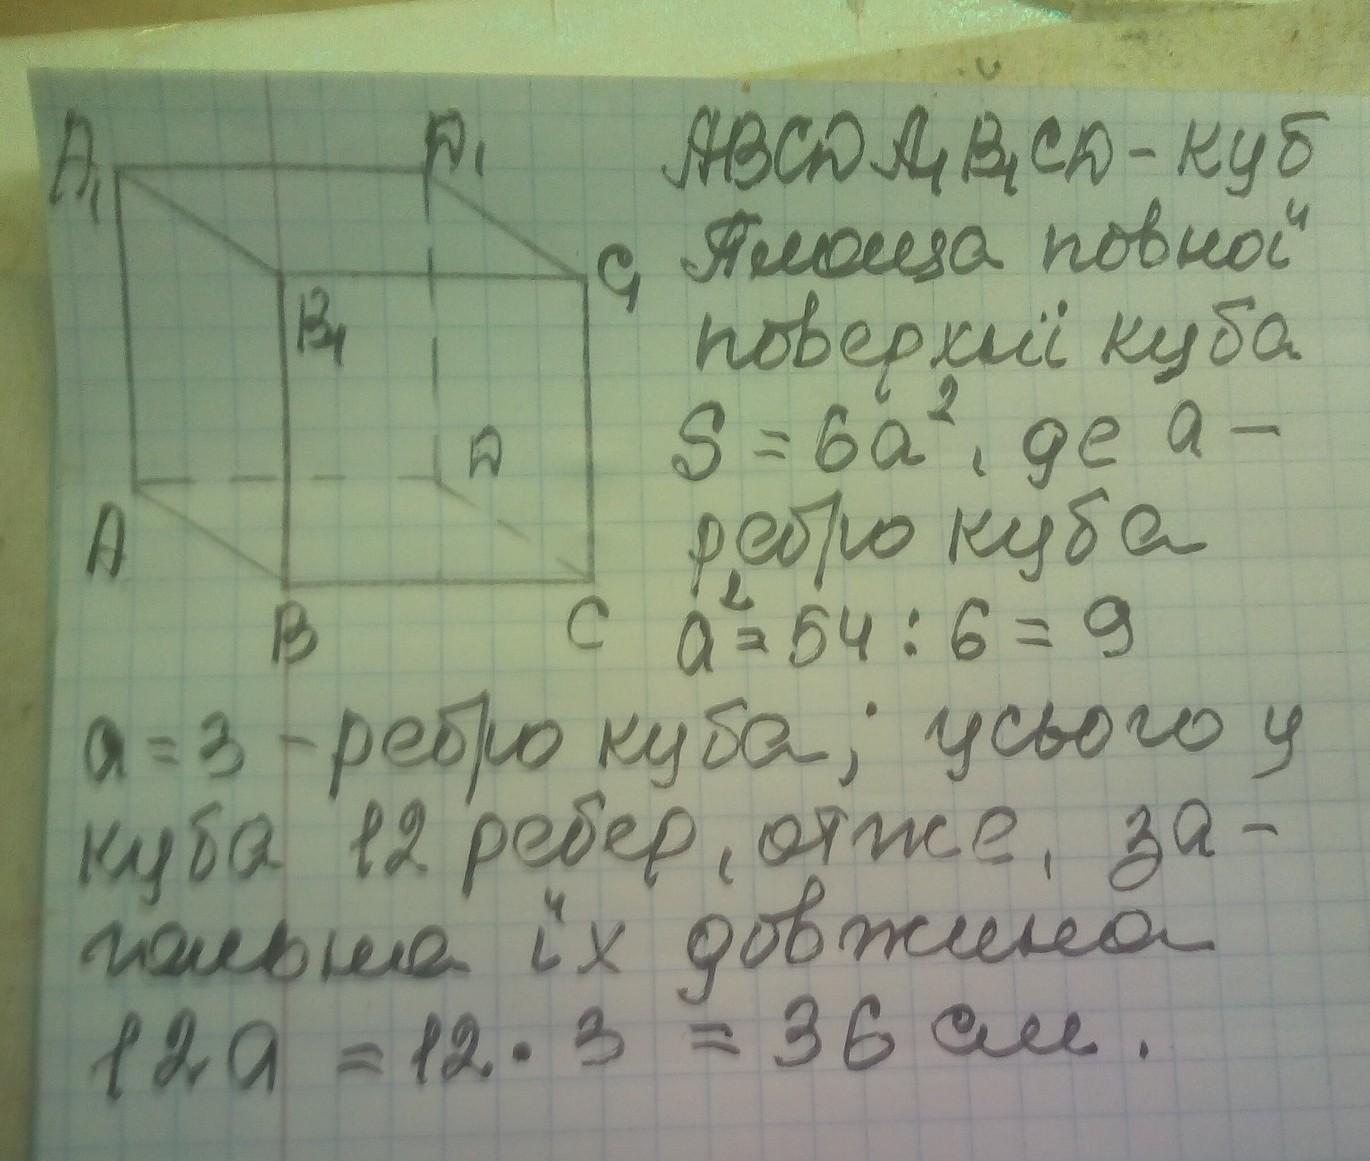 A₁ D₁
C₁
B₁
D
A
B C
ABCDA₁B₁CD - куб
Площа повної
поверхні куба
S = 6a², де a -
ребро куба
a² = 54 : 6 = 9
a = 3 - ребро куба; усього у
куба 12 ребер, отже, за-
гальна їх довжина
12a = 12 · 3 = 36 см.